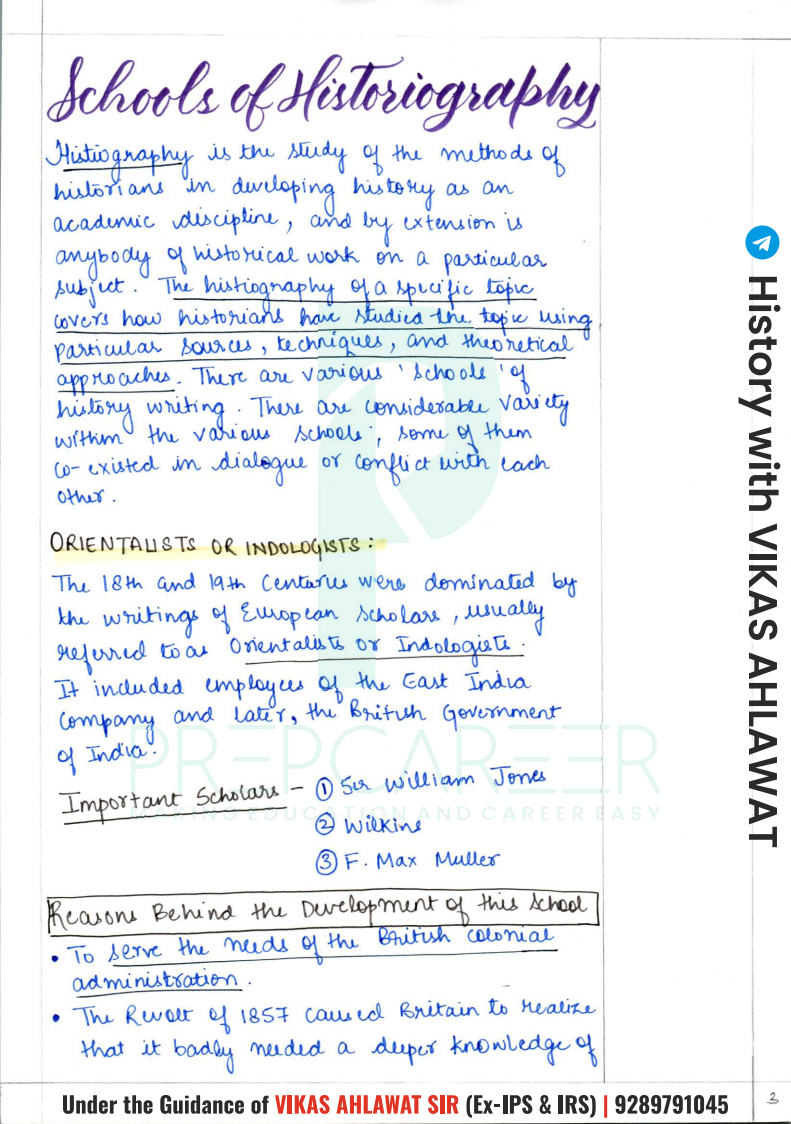 Schools of Historiography
Histiography is the study of the methods of
historians in developing history as an
academic discipline, and by extension is
anybody of historical work on a particular
subject. The histiography of a specific topic
covers how historians have studied the topic using
particular sources, techniques, and theoretical
approaches. There are various 'schools' of
history writing. There are considerable variety
within the various schools; some of them
co-existed in dialogue or conflict with each
other.
ORIENTALISTS OR INDOLOGISTS:
The 18th and 19th Centuries were dominated by
the writings of European scholars, usually
referred to as Orientalists or Indologists.
It included employees of the East India
Company and later, the British Government
of India.
PREPCAREER
MAKING EDUCATION AND CAREER EASY
Important Scholars - ① Sir William Jones
② Wilkins
③ F. Max Muller
Reasons Behind the Development of this School
• To serve the needs of the British colonial
administration.
• The Revolt of 1857 caused Britain to realize
that it badly needed a deeper knowledge of
History with VIKAS AHLAWAT
Under the Guidance of VIKAS AHLAWAT SIR (Ex-IPS & IRS) | 9289791045
3